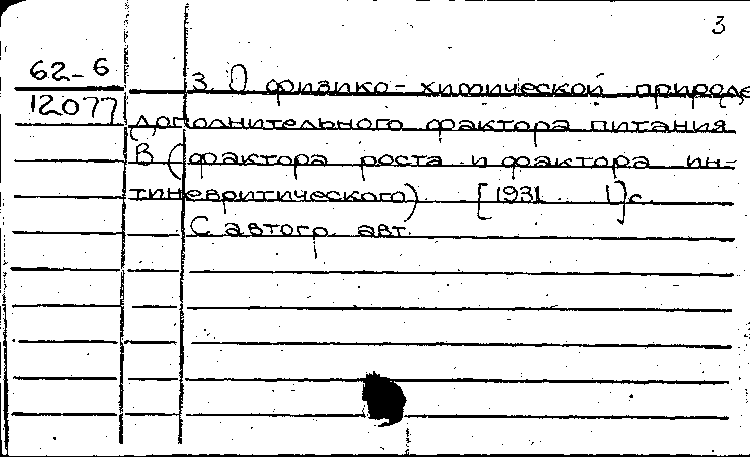 3
62-6 3. О физико-химической природе
12077 дополнительного фактора питания
В (фактора роста и фактора ин-
тиневритического) [1931 1]с.
С автогр. авт.